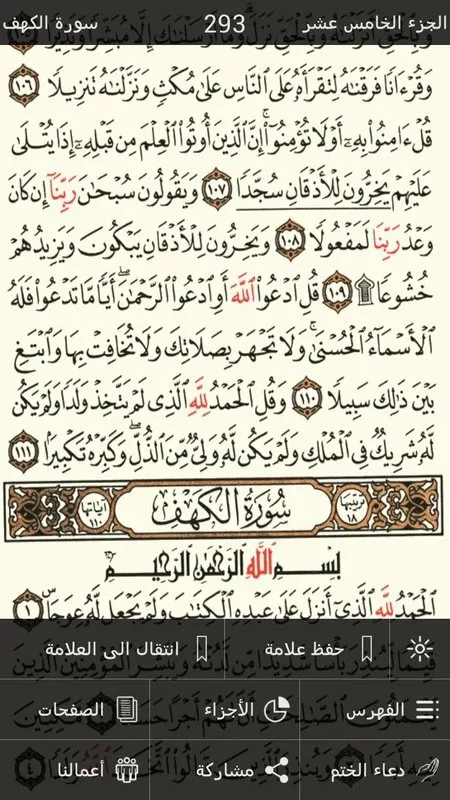 سورة الكهف 293 الجزء الخامس عشر
وَبِٱلْحَقِّ أَنزَلْنَٰهُ وَبِٱلْحَقِّ نَزَلَ وَمَآ أَرْسَلْنَٰكَ إِلَّا مُبَشِّرًا وَنَذِيرًا ١٠٥
وَقُرْءَانًا فَرَقْنَٰهُ لِتَقْرَأَهُۥ عَلَى ٱلنَّاسِ عَلَىٰ مُكْثٍ وَنَزَّلْنَٰهُ تَنزِيلًا ١٠٦
قُلْ ءَامِنُوا۟ بِهِۦٓ أَوْ لَا تُؤْمِنُوٓا۟ إِنَّ ٱلَّذِينَ أُوتُوا۟ ٱلْعِلْمَ مِن قَبْلِهِۦٓ إِذَا يُتْلَىٰ
عَلَيْهِمْ يَخِرُّونَ لِلْأَذْقَانِ سُجَّدًا ١٠٧ وَيَقُولُونَ سُبْحَٰنَ رَبِّنَآ إِن كَانَ
وَعْدُ رَبِّنَا لَمَفْعُولًا ١٠٨ وَيَخِرُّونَ لِلْأَذْقَانِ يَبْكُونَ وَيَزِيدُهُمْ
خُشُوعًا ۩ ١٠٩ قُلِ ٱدْعُوا۟ ٱللَّهَ أَوِ ٱدْعُوا۟ ٱلرَّحْمَٰنَ ۖ أَيًّا مَّا تَدْعُوا۟ فَلَهُ
ٱلْأَسْمَآءُ ٱلْحُسْنَىٰ ۚ وَلَا تَجْهَرْ بِصَلَاتِكَ وَلَا تُخَافِتْ بِهَا وَٱبْتَغِ
بَيْنَ ذَٰلِكَ سَبِيلًا ١١٠ وَقُلِ ٱلْحَمْدُ لِلَّهِ ٱلَّذِى لَمْ يَتَّخِذْ وَلَدًا وَلَمْ يَكُن
لَّهُۥ شَرِيكٌ فِى ٱلْمُلْكِ وَلَمْ يَكُن لَّهُۥ وَلِىٌّ مِّنَ ٱلذُّلِّ ۖ وَكَبِّرْهُ تَكْبِيرًۢا ١١١
ترتيبها ١٨ سُورَةُ الكَهْفِ آياتها ١١٠
بِسْمِ ٱللَّهِ ٱلرَّحْمَٰنِ ٱلرَّحِيمِ
ٱلْحَمْدُ لِلَّهِ ٱلَّذِىٓ أَنزَلَ عَلَىٰ عَبْدِهِ ٱلْكِتَٰبَ وَلَمْ يَجْعَل لَّهُۥ عِوَجَا ١
حفظ علامة انتقال الى العلامة
قَيِّمًا لِّيُنذِرَ بَأْسًا شَدِيدًا مِّن لَّدُنْهُ وَيُبَشِّرَ ٱلْمُؤْمِنِينَ ٱلَّذِينَ
الفهرس الأجزاء الصفحات
دعاء الختم مشاركة أعمالنا